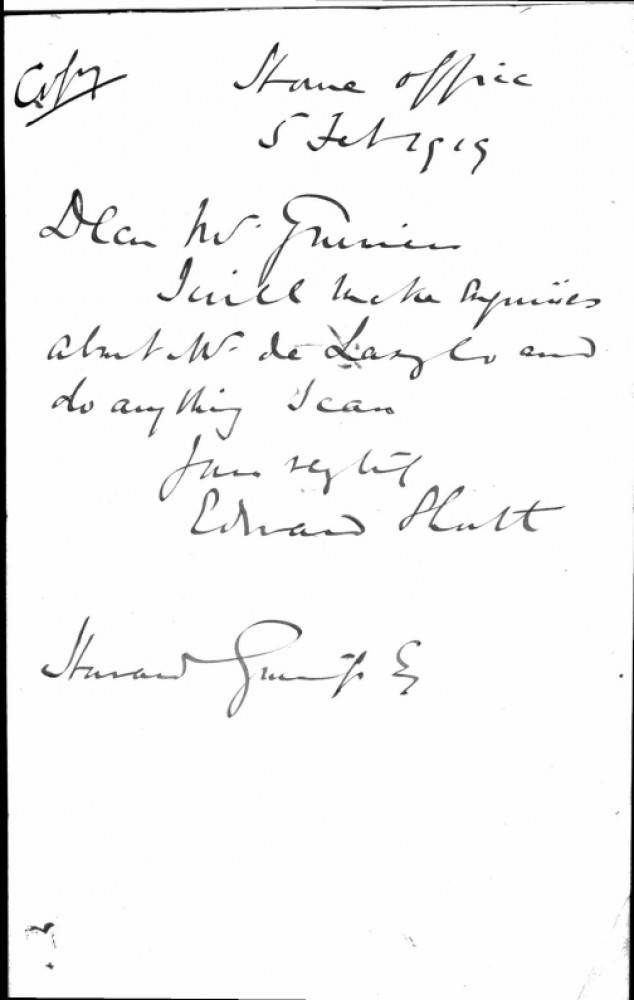 Copy
Home Office
5 Feb 1919
Dear Mr. Guinness
I will make enquiries
about Mr. de Laszlo and
do anything I can
Yours very truly
Edward Shortt
Howard Guinness Esq